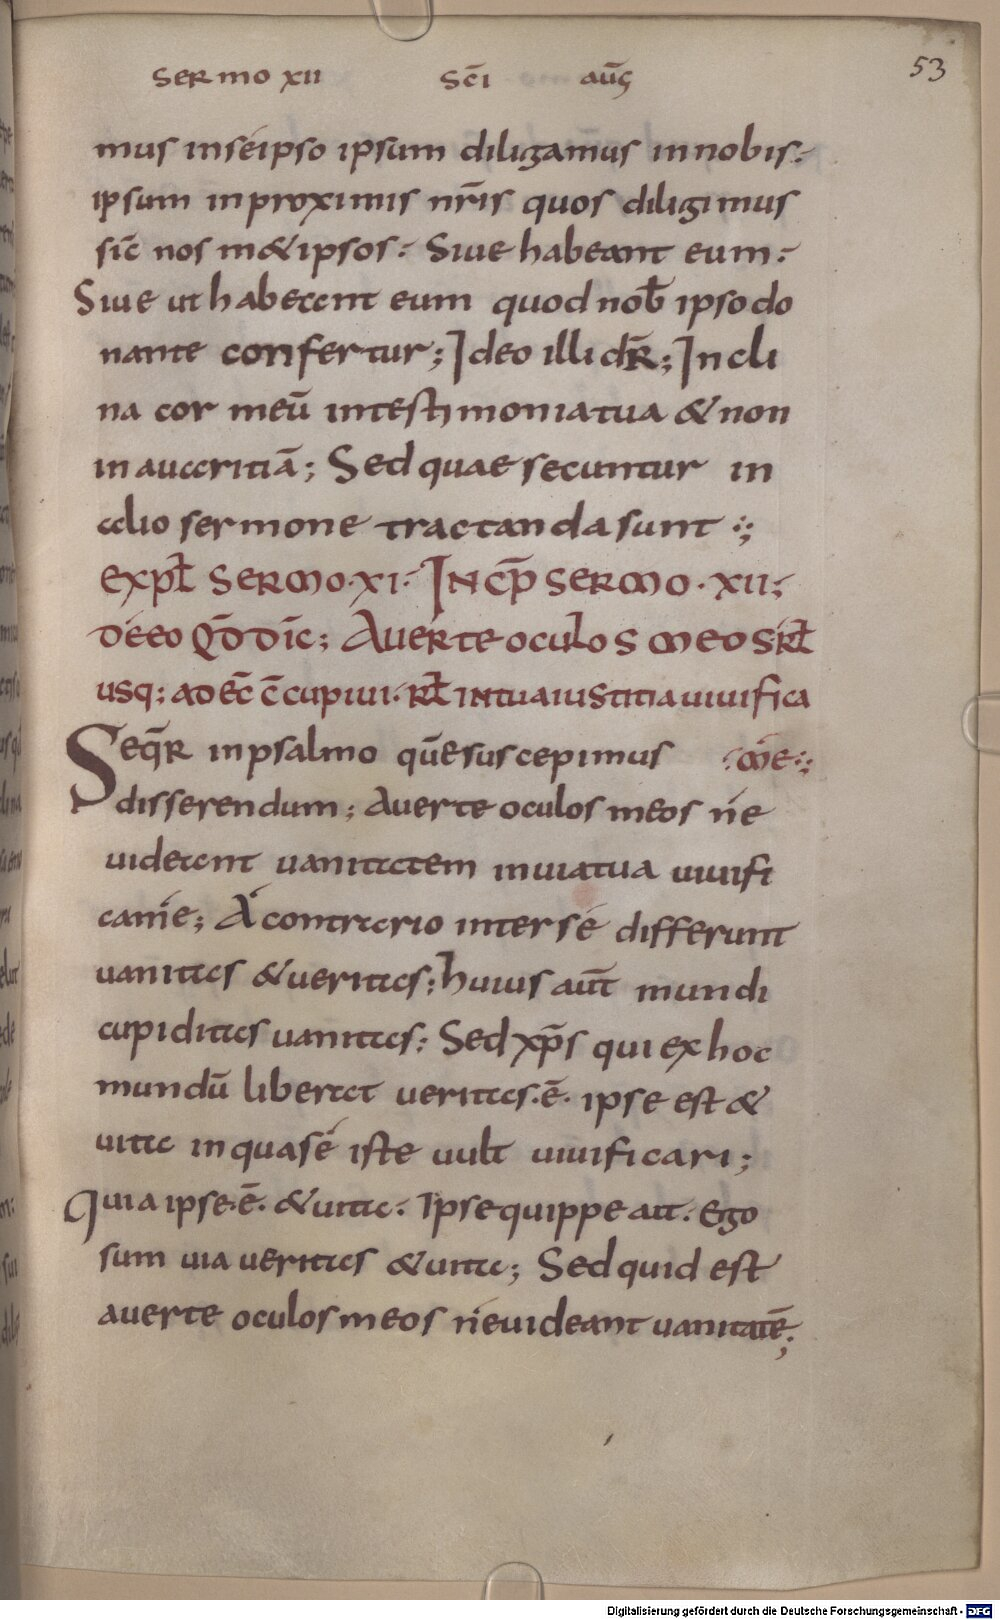 sermo xii scī auḡ
53
mus inseipso ipsum diligamus innobis:
ipsum inproximis nr̄is quos diligimus
sic̄ nos m&ipsos: Siue habeant eum:
Siue ut habeant eum quod nob̄ ipsodo
nante confertur; Ideo illi dr̄; Incli
na cor meū intestimonia tua & non
in auaritiā; Sed quae secuntur in
alio sermone tractanda sunt :;
expł sermo·xi· Incp̄ sermo·xii;
de eo qd̄ dic̄; Auerte oculos meos rł
usq; ad ec̄ c̄cupiui· rł intua iustitia uiuifica
Seqr̄ inpsalmo quē suscepimus :mē:
disserendum; Auerte oculos meos ne
uideant uanitatem inuia tua uiuifi
came; A contrario inter sé differunt
uanitas & ueritas; huius aut̄ mundi
cupiditas uanitas: Sed xp̄s qui ex hoc
mundū liberat ueritas·ē· ipse est &
uita inqua sé iste uult uiuificari;
Quia ipse·ē· & uita: Ipse quippe ait: Ego
sum uia ueritas & uita; Sed quid est
auerte oculos meos ne uideant uanitatē;
Digitalisierung gefördert durch die Deutsche Forschungsgemeinschaft - DFG